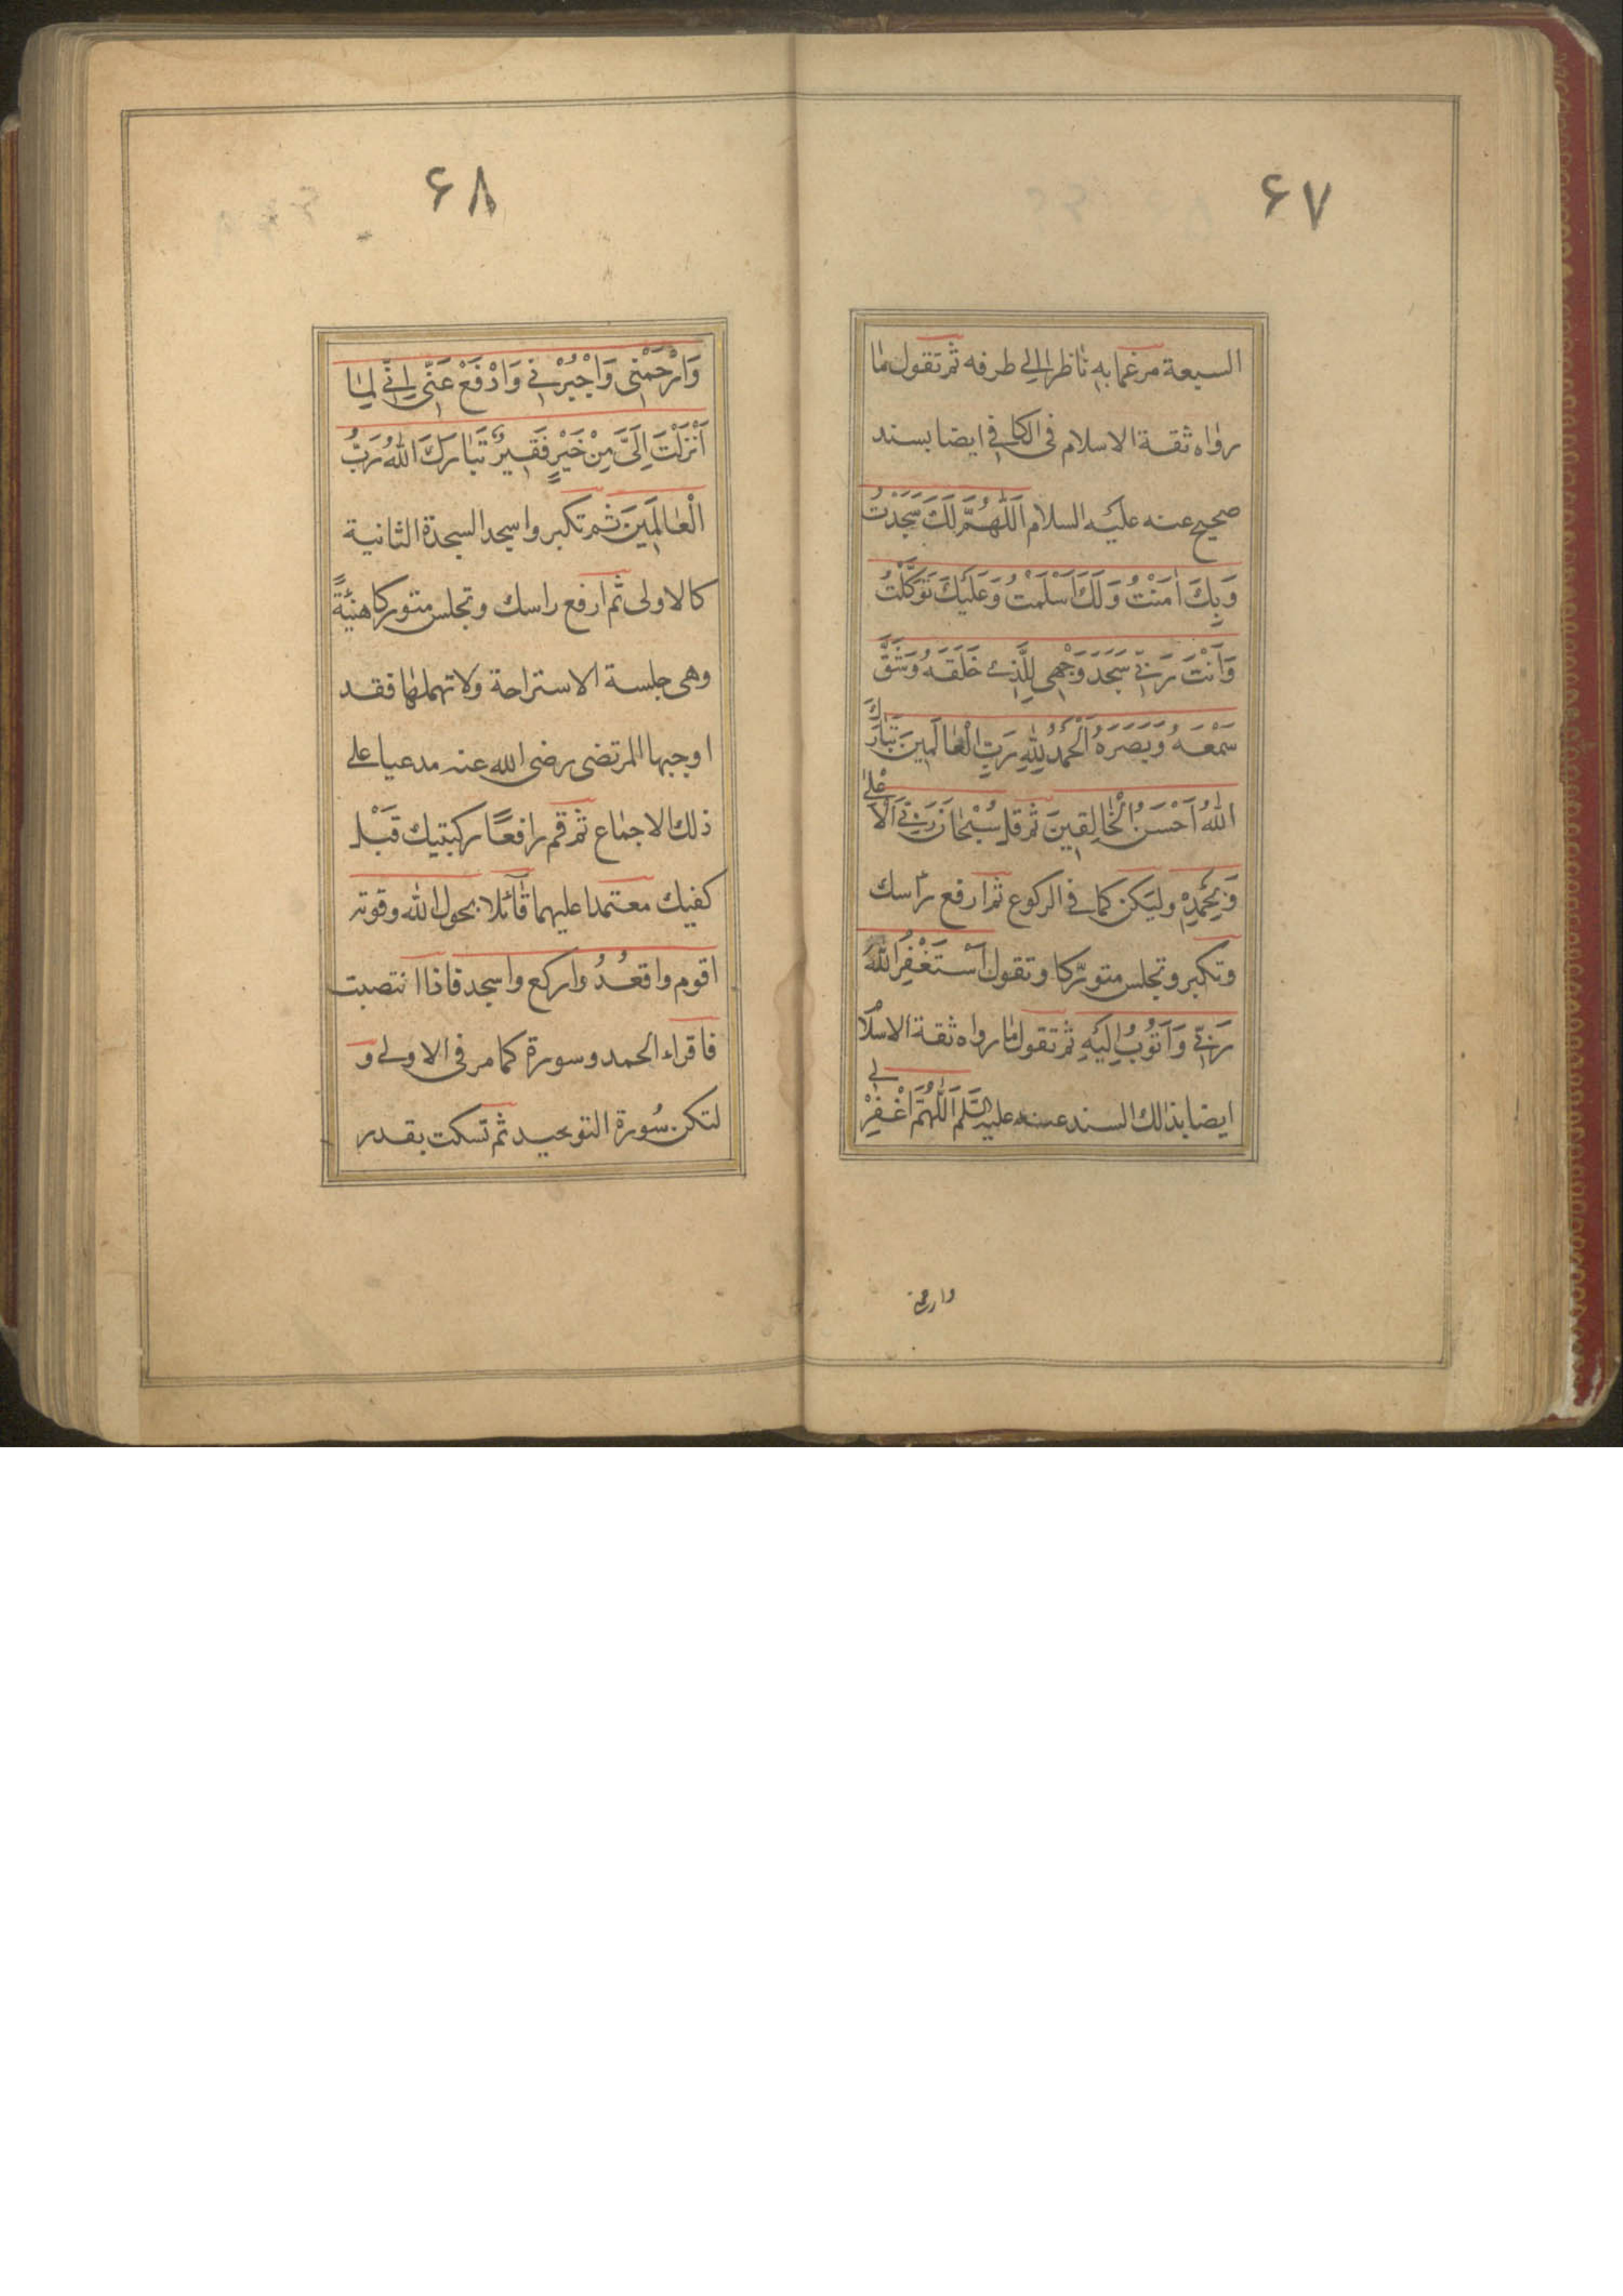 ۶۷
السبعة مرغما به ناظرا الى طرفه ثم تقول ما
رواه ثقة الاسلام فى الكافي ايضا بسند
صحيح عنه عليه السلام اَللّٰهُمَّ لَكَ سَجَدْتُ
وَبِكَ اٰمَنْتُ وَلَكَ اَسْلَمْتُ وَعَلَيْكَ تَوَكَّلْتُ
وَاَنْتَ رَبّي سَجَدَ وَجْهِي لِلَّذِي خَلَقَهُ وَشَقَّ
سَمْعَهُ وَبَصَرَهُ اَلْحَمْدُ لِلّٰهِ رَبِّ الْعٰالَمِينَ تَبٰارَكَ
اللّٰهُ اَحْسَنُ الْخٰالِقِينَ ثم قل سُبْحٰانَ رَبِّيَ الْاَعْلىٰ
وَبِحَمْدِهِ وليكن كما في الركوع ثم ارفع راسك
وتكبر وتجلس متورّكا وتقول اَسْتَغْفِرُ اللّٰهَ
رَبّي وَاَتُوبُ اِلَيْهِ ثم تقول ما رواه ثقة الاسلام
ايضا بذلك السند عنه عليه السّلم اَللّٰهُمَّ اغْفِرْ لي
وارحمنى
۶۸
وَارْحَمْنِي وَاجْبُرْنِي وَادْفَعْ عَنّي اِنّي لِمٰا
اَنْزَلْتَ اِلَيَّ مِنْ خَيْرٍ فَقِيرٌ تَبٰارَكَ اللّٰهُ رَبُّ
الْعٰالَمِينَ ثم تكبر واسجد السجدة الثانية
كالاولى ثم ارفع راسك وتجلس متوركا هنيئةً
وهى جلسة الاستراحة ولا تهملها فقد
اوجبها المرتضى رضى الله عنه مدعيا على
ذلك الاجماع ثم قم رافعًا ركبتيك قَبْل
كفيك معتمدا عليهما قائلا بحول الله وقوته
اقوم واقعُدُ واركع واسجد فاذا انتصبت
فاقراء الحمد وسورة كما مر في الاولى و
لتكن سُورة التوحيد ثم تسكت بقدر